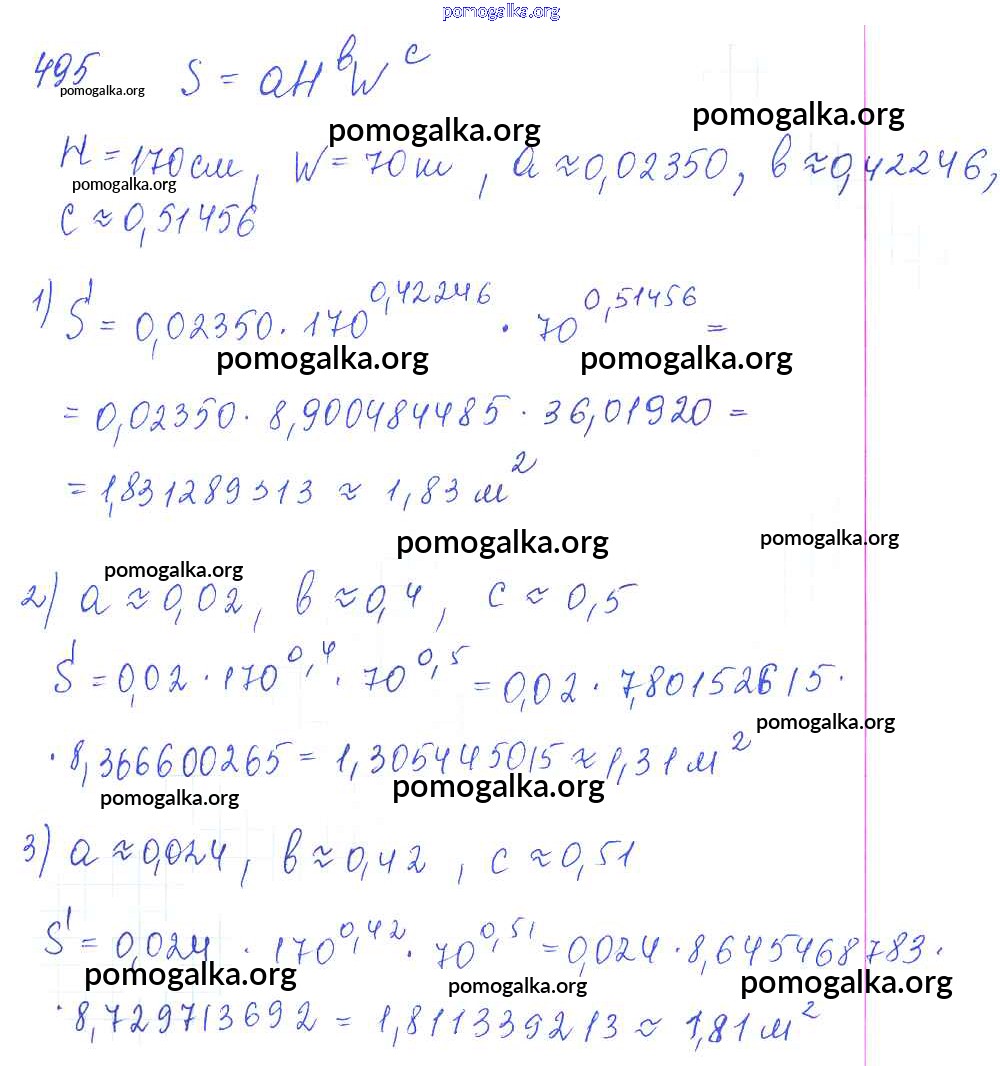 pomogalka.org
495 S = aH^b W^c
pomogalka.org
pomogalka.org pomogalka.org
H = 170 см, W = 70 кг, a ≈ 0,02350, b ≈ 0,42246,
pomogalka.org
c ≈ 0,51456
1) S = 0,02350 · 170^0,42246 · 70^0,51456 =
pomogalka.org pomogalka.org
= 0,02350 · 8,900484485 · 36,01920 =
= 1,831289313 ≈ 1,83 м²
pomogalka.org pomogalka.org
pomogalka.org
2) a ≈ 0,02, b ≈ 0,4, c ≈ 0,5
S = 0,02 · 170^0,4 · 70^0,5 = 0,02 · 7,801526615 ·
pomogalka.org
· 8,366600265 = 1,305445015 ≈ 1,31 м²
pomogalka.org pomogalka.org
3) a ≈ 0,024, b ≈ 0,42, c ≈ 0,51
S = 0,024 · 170^0,42 · 70^0,51 = 0,024 · 8,645468783 ·
pomogalka.org pomogalka.org pomogalka.org
· 8,729713692 = 1,811339213 ≈ 1,81 м²